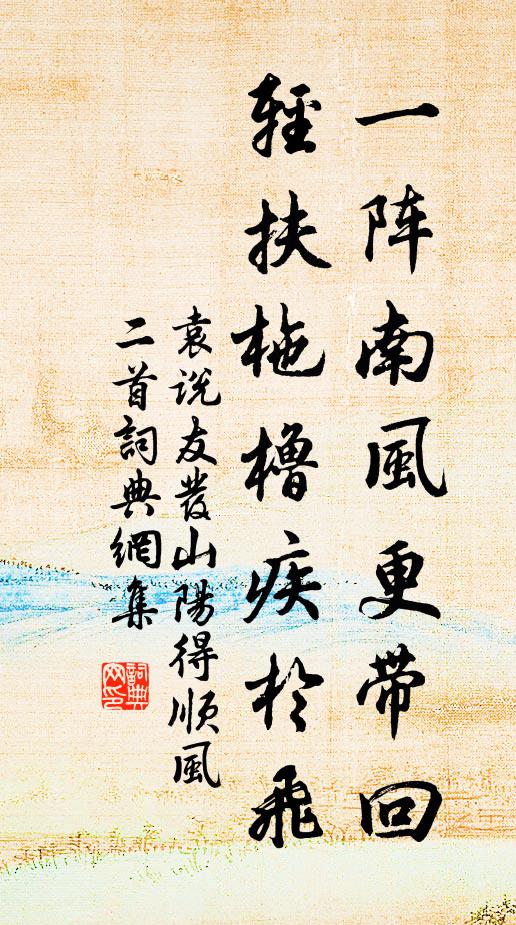 一阵南風更带回
輕扶柂櫓疾於飛
袁说友發山陽得順風
二首詞典網集
詞典
网印